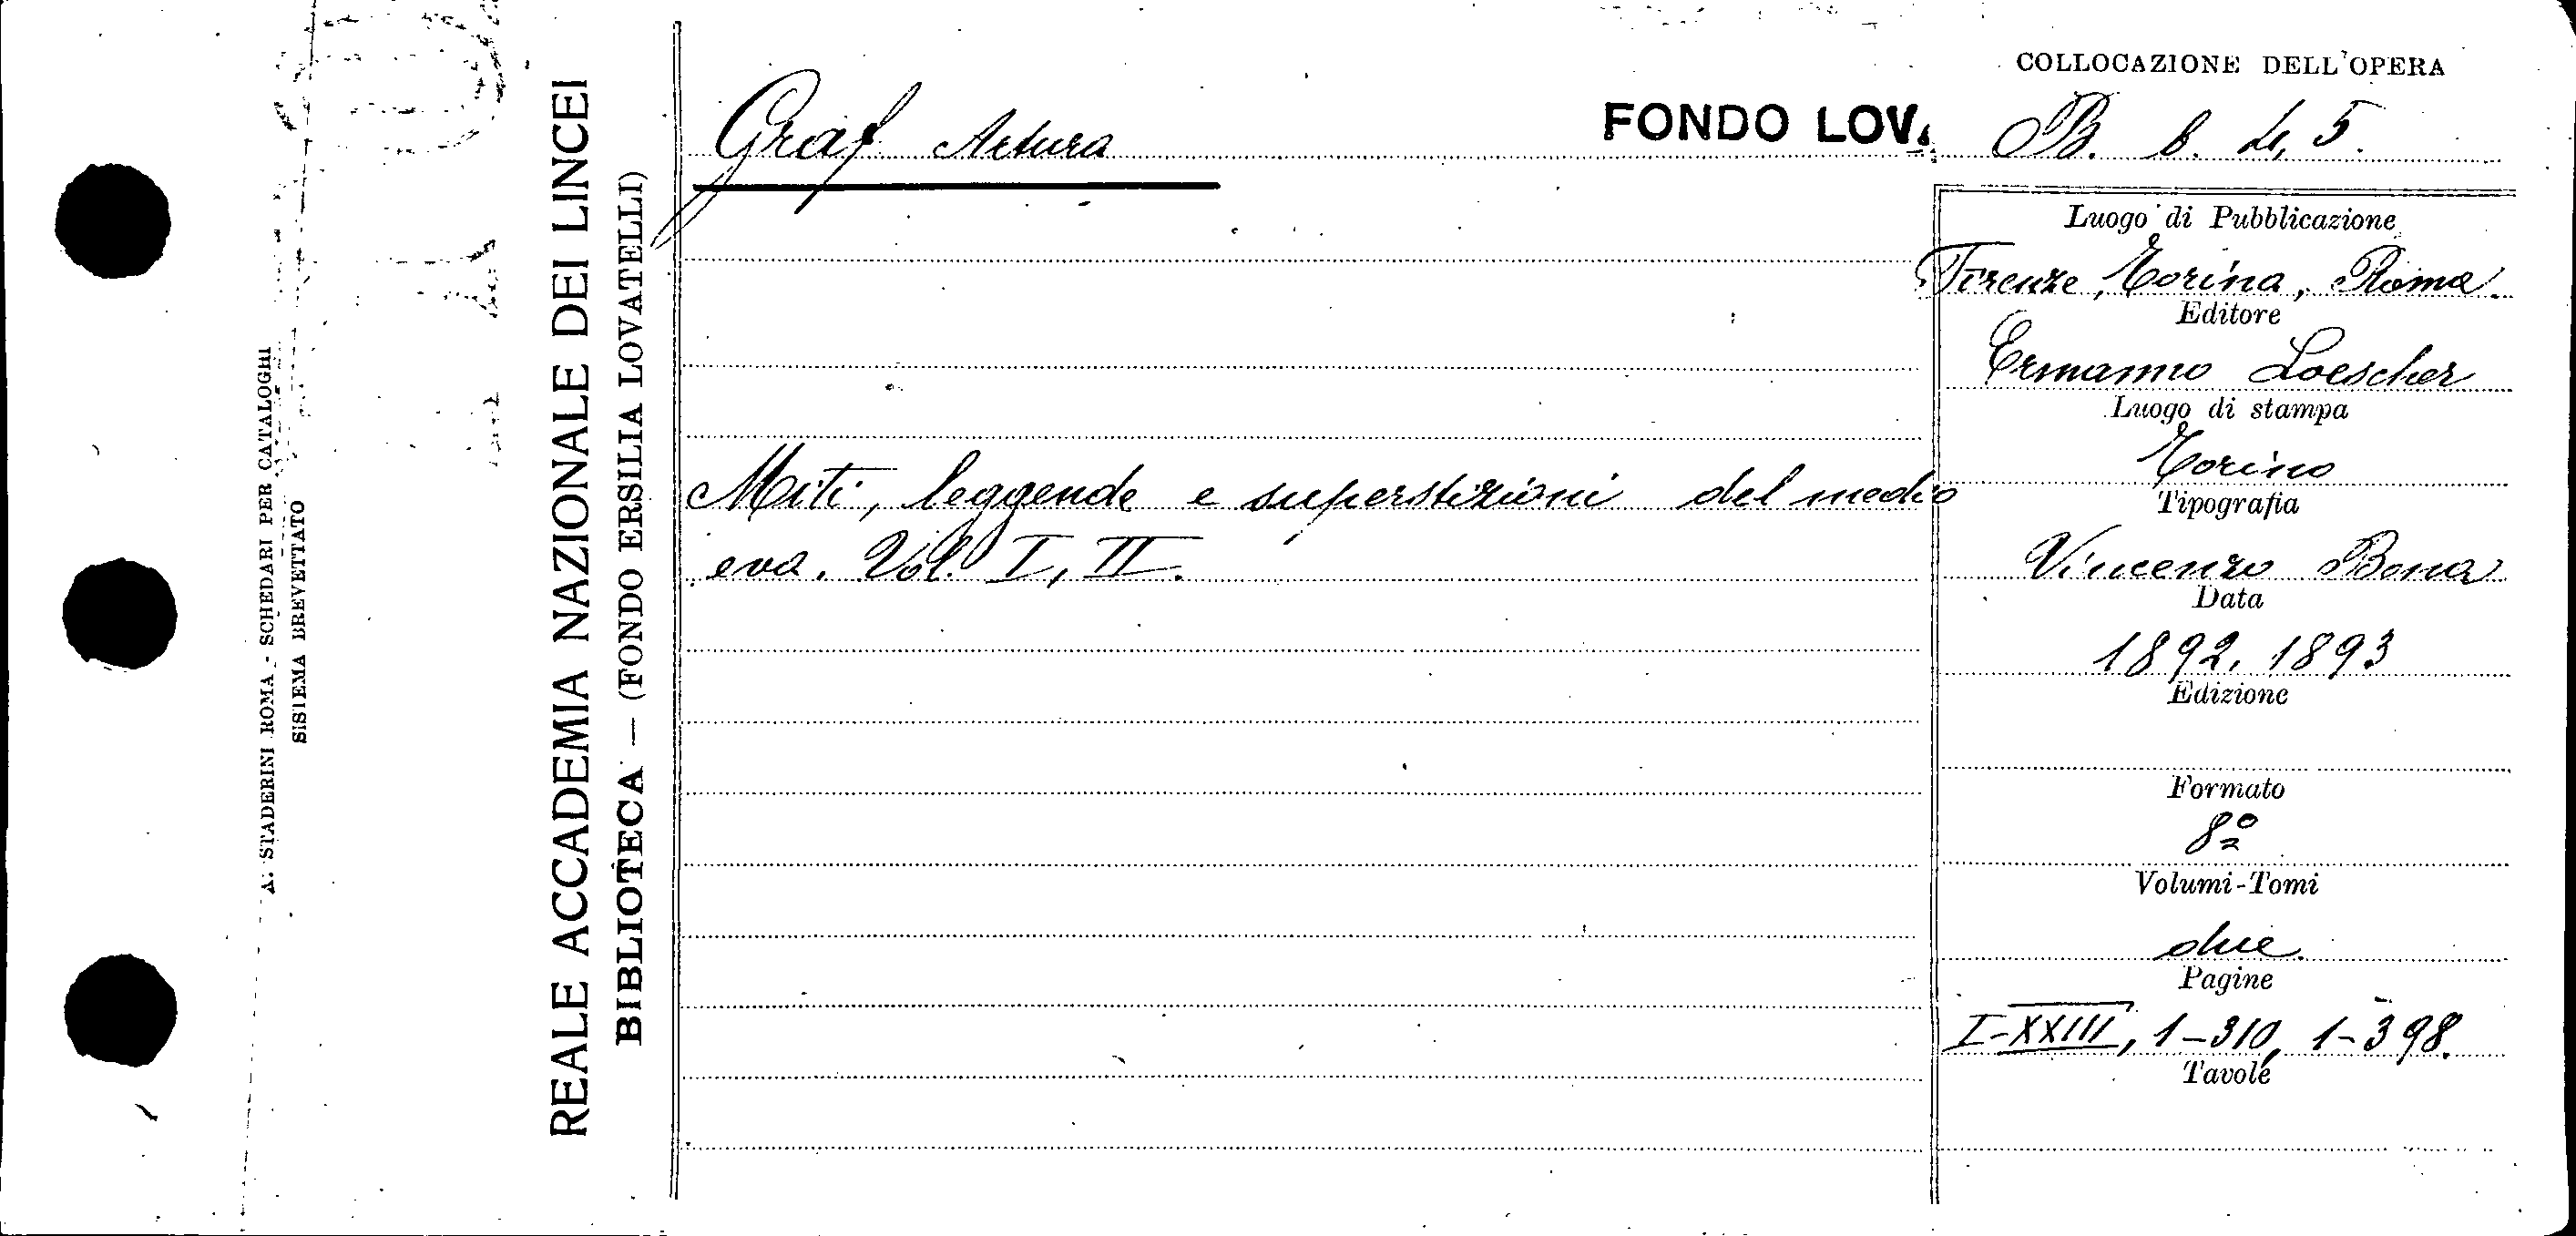 A. STADERINI ROMA - SCHEDARI PER CATALOGHI
SISTEMA BREVETTATO
REALE ACCADEMIA NAZIONALE DEI LINCEI
BIBLIOTECA — (FONDO ERSILIA LOVATELLI)
Graf Arturo
Miti, leggende e superstizioni del medio
evo. Vol. I, II.
COLLOCAZIONE DELL'OPERA
FONDO LOV. B. 6. 4, 5.
Luogo di Pubblicazione
Firenze, Torino, Roma.
Editore
Ermanno Loescher
Luogo di stampa
Torino
Tipografia
Vincenzo Bona
Data
1892, 1893
Edizione
Formato
8º
Volumi-Tomi
due.
Pagine
I-XXIII, 1-310, 1-398.
Tavole